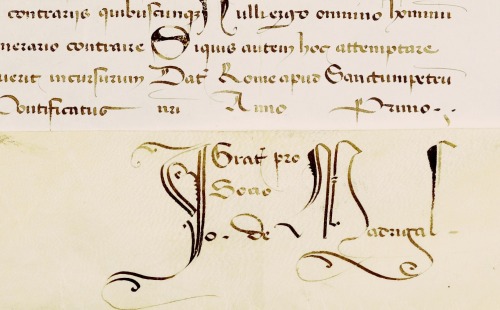 contrariis quibuscunqꝫ Nulli ergo omnino hominu
temerario contraire Siquis autem hoc attemptare
uerit incursurum Dat Rome apud Sanctumpetru
Pontificatus nri Anno Primo
Grat pro
Socio
Jo. de Madrigal